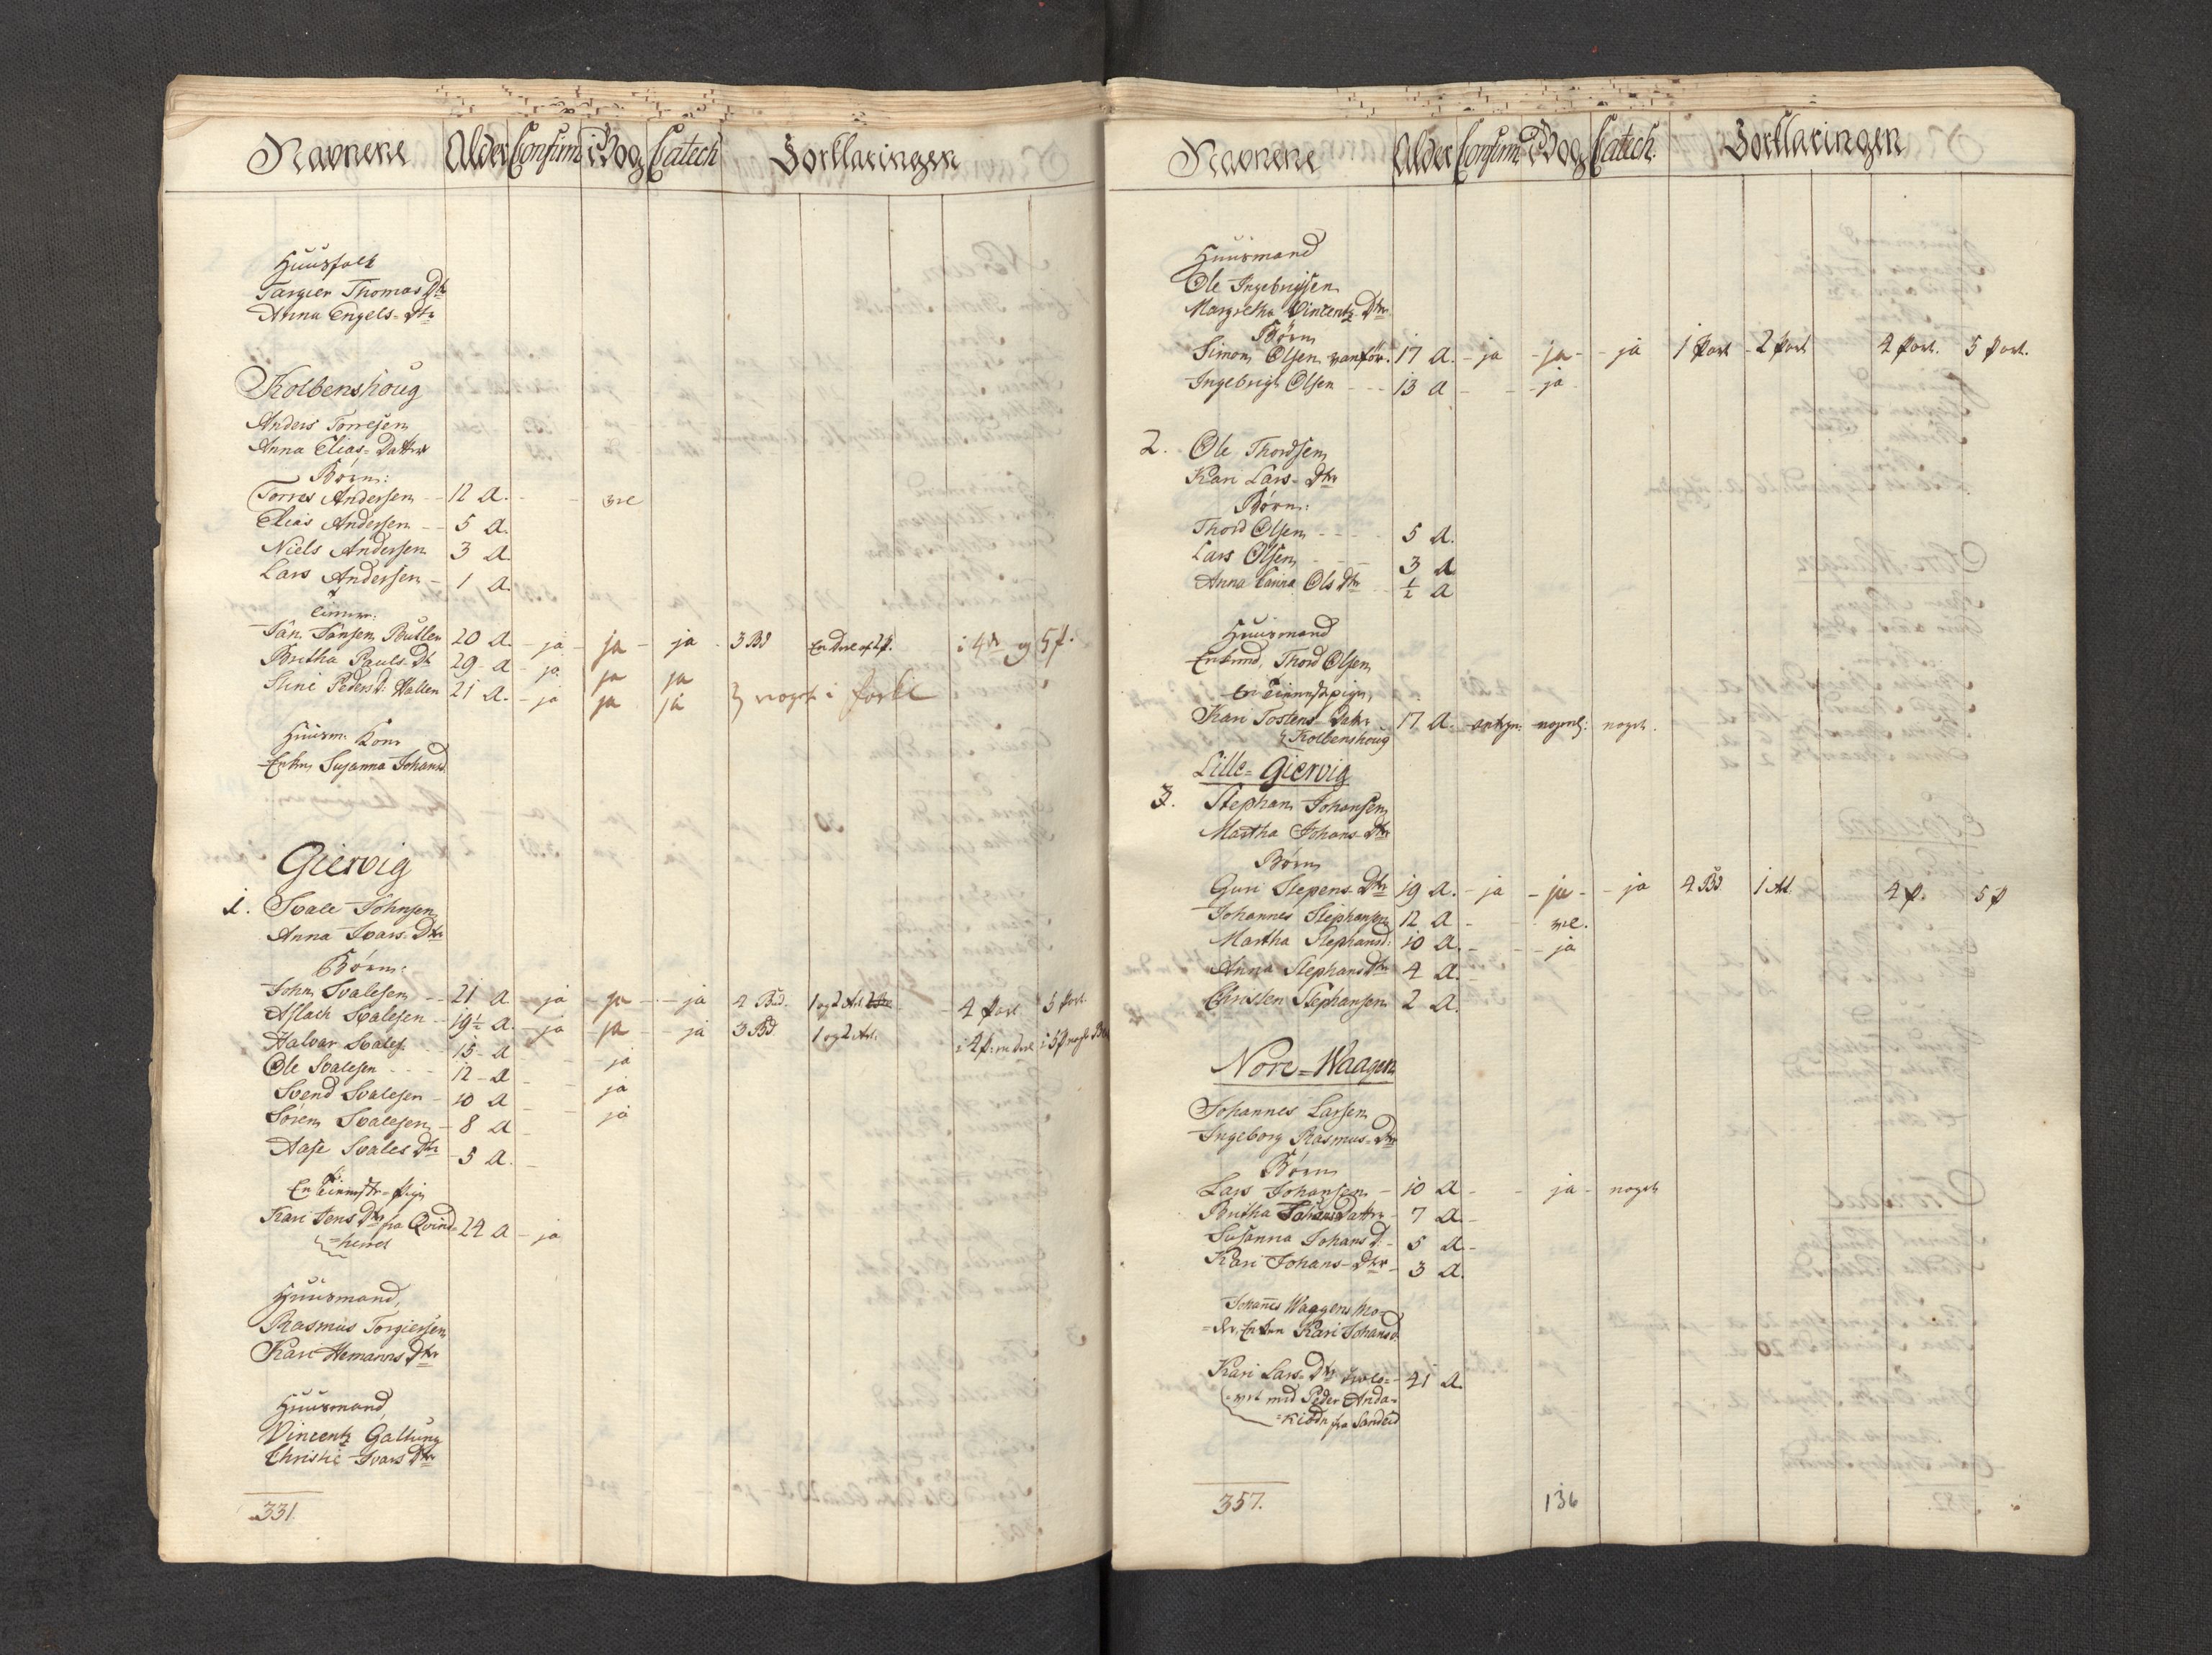 Navnene Alder Confirm i Bog Catech Forklaringen
Huusfolk
Torgier Thomas Dtr
Anna Engels-Dtr
Kolbenshoug
Anders Torresen
Anna Elias-Datter
Børn:
Torres Andersen 12 A. - - vel
Elias Andersen 5 A.
Niels Andersen 3 A.
Lars Andersen 1 A.
Tienner:
Jan Jansen Butler 20 A. - ja - ja - ja - 3 Bd i 4de og 5 p.
Britha Pauls-Dtr 29 A - ja ja ja
Stine Peders D. Hallen 21 A. - ja ja ja noget i forkl
Huusm: Kone
Enken Susanna Johansd
Giervig
1. Svale Johnsen
Anna Ivars-Dtr
Børn:
John Svalesen 21 A - ja - ja - - ja 4 Bud. 1 og 2 Art. 4 part 5 part.
Aslach Svalesen 19½ A. - ja ja - ja 3 Bd 1 og 2 Art.
Halvar Svales. 15 A - ja
Ole Svalesen 12 - A - ja
Svend Svalesen 10 A - ja
Søren Svalesen 8 A
Aase Svales Dtr 5 A.
En Tienneste-Pige
Kari Jens Dtr fra Qvind= 24 A - ja
=herred
Huusmand,
Rasmus Torgiersen
Kari Hemanns Dtr
Huusmand
Vincentz Galtung
Christie Ivars Dtr
331.
Navnene Alder Confirm i Bog Catech. Forklaringen
Huusmand
Ole Ingebrigsen
Margretha Vincentz Dtr
Børn
Simon Olsen vanfør. 17 A. - ja - ja - - ja 1 Part - 2 Part 4 Part. 5 Part.
Ingebrigt Olsen - - 13 A - - ja
2. Ole Thordsen
Kari Lars-Dtr
Børn:
Thord Olsen - - - 5 A.
Lars Olsen - - - 3 A
Anna Carina Ols Dtr ½ A
Huusmand
Enkemd, Thord Olsen
En Tiennestepige,
Kari Tostens Datter 17 A. noget.
Kolbenshoug
Lille=Giervig
3. Stephan Johansen
Martha Johans-Dtr
Børn
Guri Stepens Dtr 19 A. - ja - ja - - ja 4 Bd. 1 Art. 4 p. 5 p
Johannes Stephansen 12 A - - vel.
Martha Stephansd: 10 A. - - ja
Anna Stephans Dtr 4 A.
Christen Stephansen 2 A.
Nore=Waagen
Johannes Larsen
Ingeborg Rasmus-Dtr
Børn
Lars Johansen - 10 A - - ja - noget
Britha Johans Datter - 7 A. -
Susanna Johans D. - 5 A. -
Kari Johans-Dtr - 3 A.
Johanes Waagens Mo=
=der, Enken Kari Johansd
Kari Lars-Dtr 41 A.
med Peder Anda=
fra Sandeid
357. 136